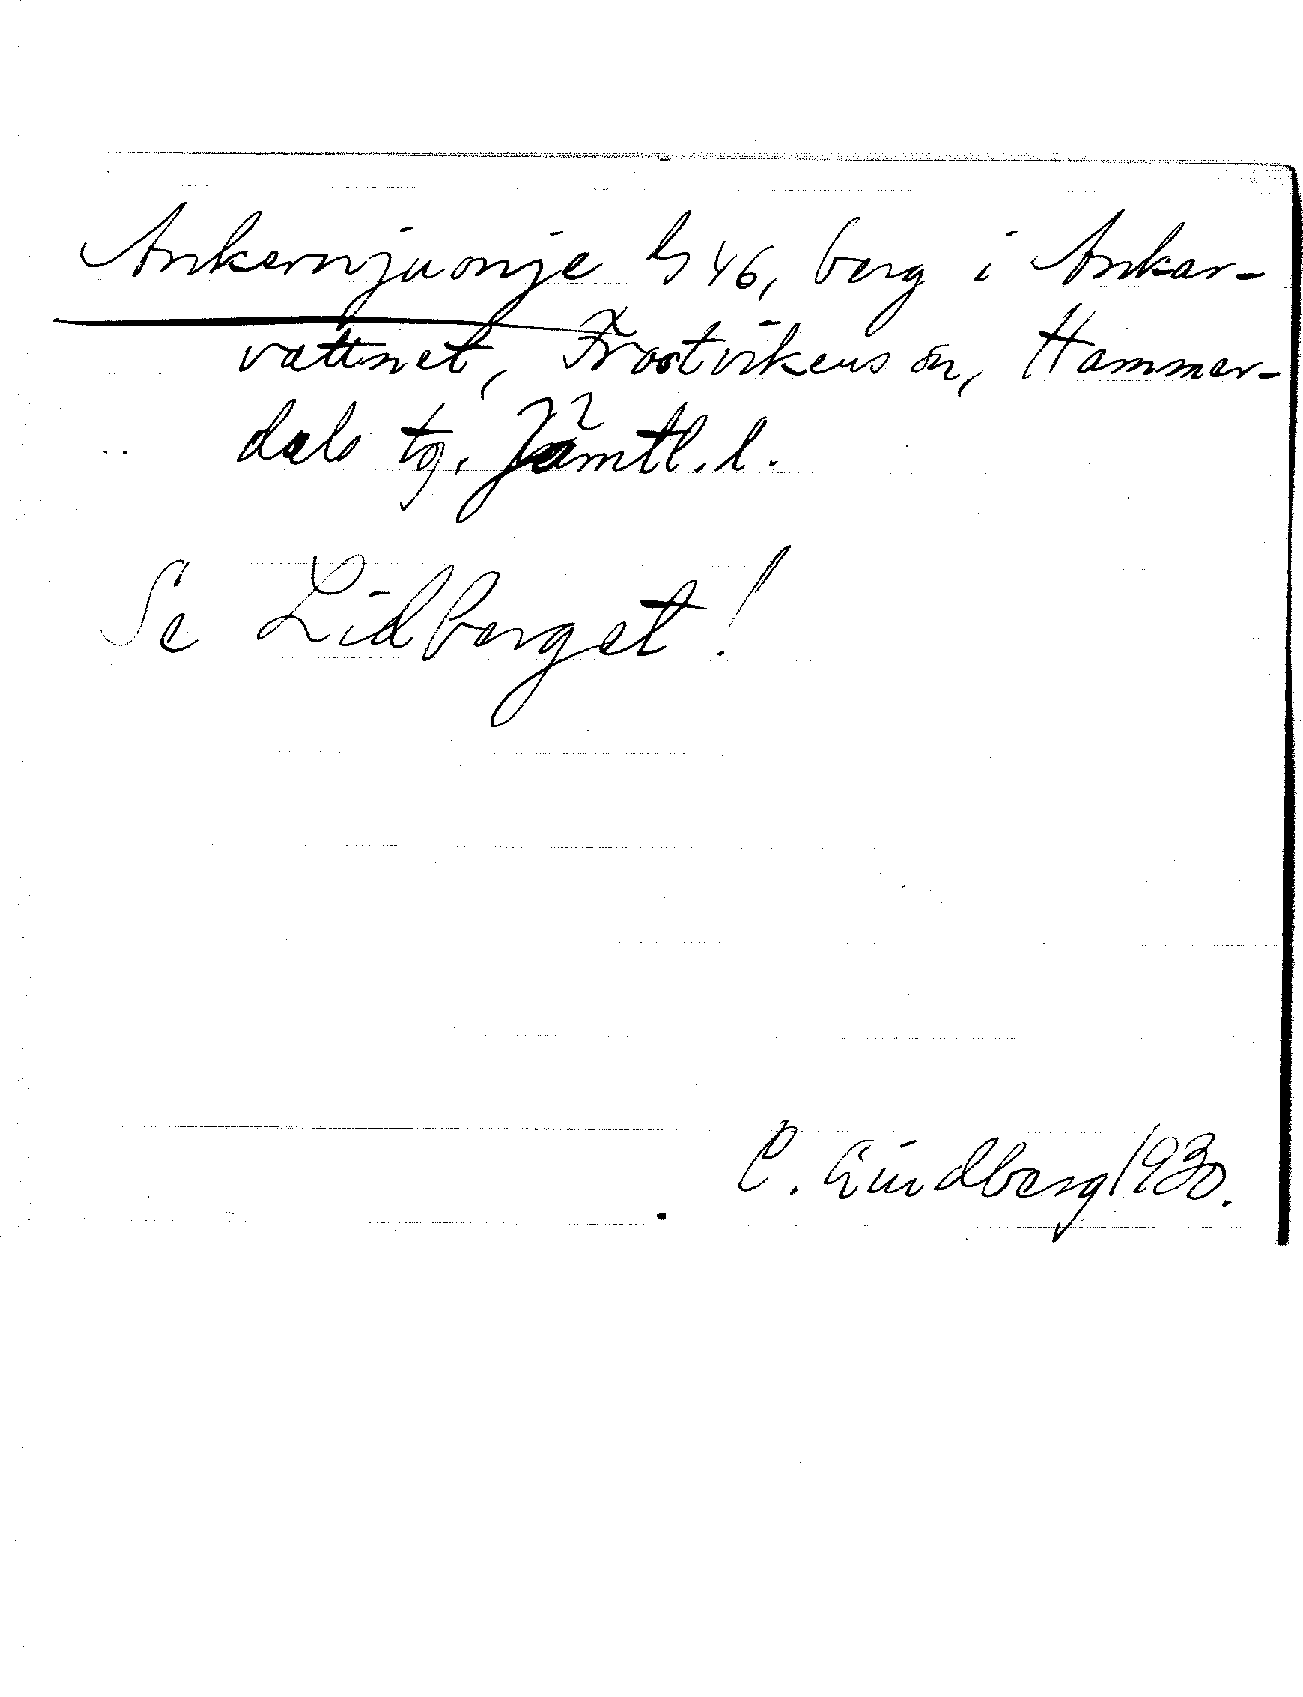 Ankernjuonje b 46, berg i Ankar-
vattnet, Frostvikens sn, Hammer-
dals tg. Jämtl. l.
Se Lidberget!
C. Lindberg 1930.